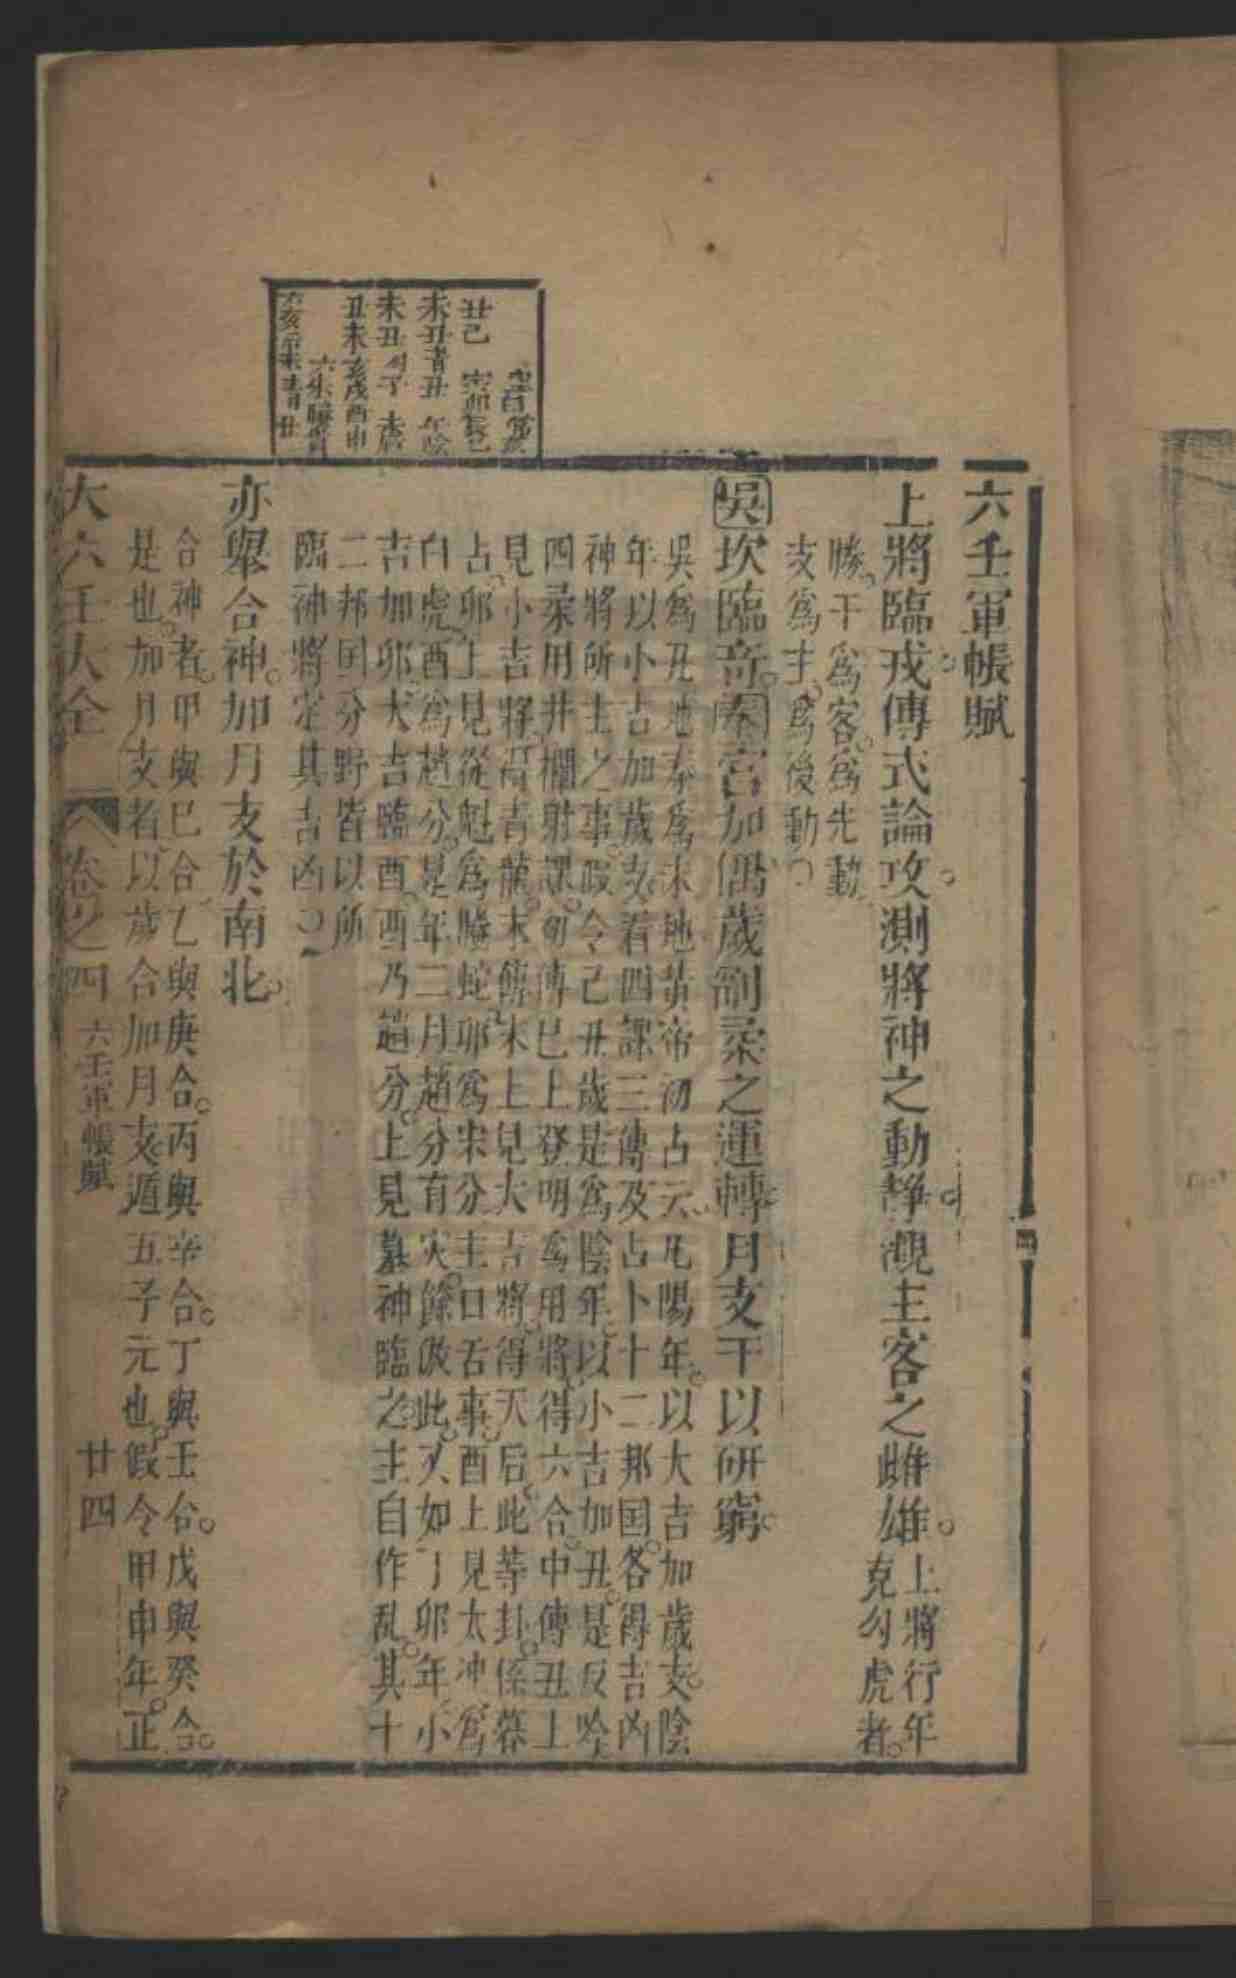 六壬軍帳賦
上將臨戎傳式論攻測將神之動靜觀主客之雌雄。上將行年
克勾虎者。
勝。干爲客。爲先動
支爲主。爲後動〇
吳坎臨奇秦宮加偶歲劄柔之運轉月支干以研窮。
吳爲丑地秦爲未地黃帝初占云凡陽年。以大吉加歲支。陰
年以小吉加歲支着四課三傳及占卜十二邦国。各得吉凶
神將所主之事。假令己丑歲是爲陰年。以小吉加丑。是反吟
四柔用井欄射課。初傳巳上登明爲用將得六合。中傳丑上
見小吉將得青龍。末傳未上見大吉將得天后此等卦。係
占。卯上見從魁爲螣蛇。卯爲宋分主口舌事。酉上見太冲爲
白虎。酉爲趙分。是年二月趙分有灾餘倣此。又如丁卯年小
吉加卯大吉臨酉。酉乃趙分。上見墓神臨之主自作乱。其十
二邦国分野皆以所
臨神將定其吉凶〇
亦舉合神。加月支於南北。
合神者。甲與己合乙與庚合。丙與辛合。丁與壬合。戊與癸合。
是也。加月支者。以歲合加月支遁五子元也。假令甲申年。正
大六壬大全
卷之四
六壬軍帳賦
廿四
丑己
未丑青丑
未丑
丑未亥戌酉申